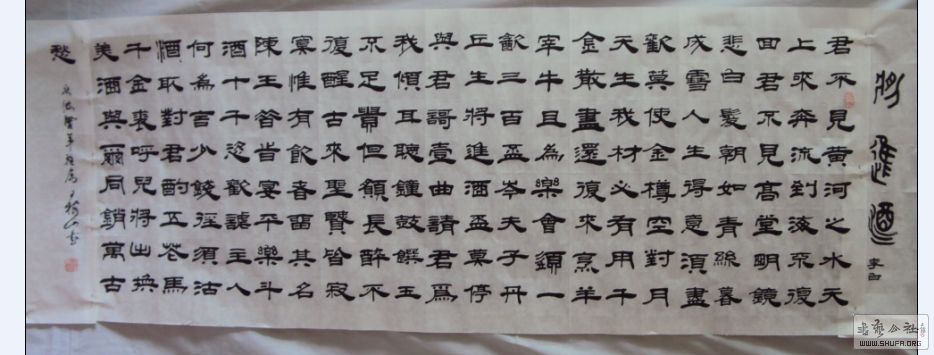 將進酒
李白
君不見黃河之水天
上來奔流到海不復
回君不見高堂明鏡
悲白髮朝如青絲暮
成雪人生得意須盡
歡莫使金樽空對月
天生我材必有用千
金散盡還復來烹羊
宰牛且為樂會須一
飲三百盃岑夫子丹
丘生將進酒盃莫停
與君謌壹曲請君爲
我傾耳聽鐘鼓饌玉
不足貴但願長醉不
復醒古來聖賢皆寂
寞惟有飲者留其名
陳王昔旹宴平樂斗
酒十千恣歡謔主人
何為言少錢徑須沽
酒取對君酌五花馬
千金裘呼兒將出換
美酒與爾同銷萬古
愁
书艺公社
WWW.SHUFA.ORG